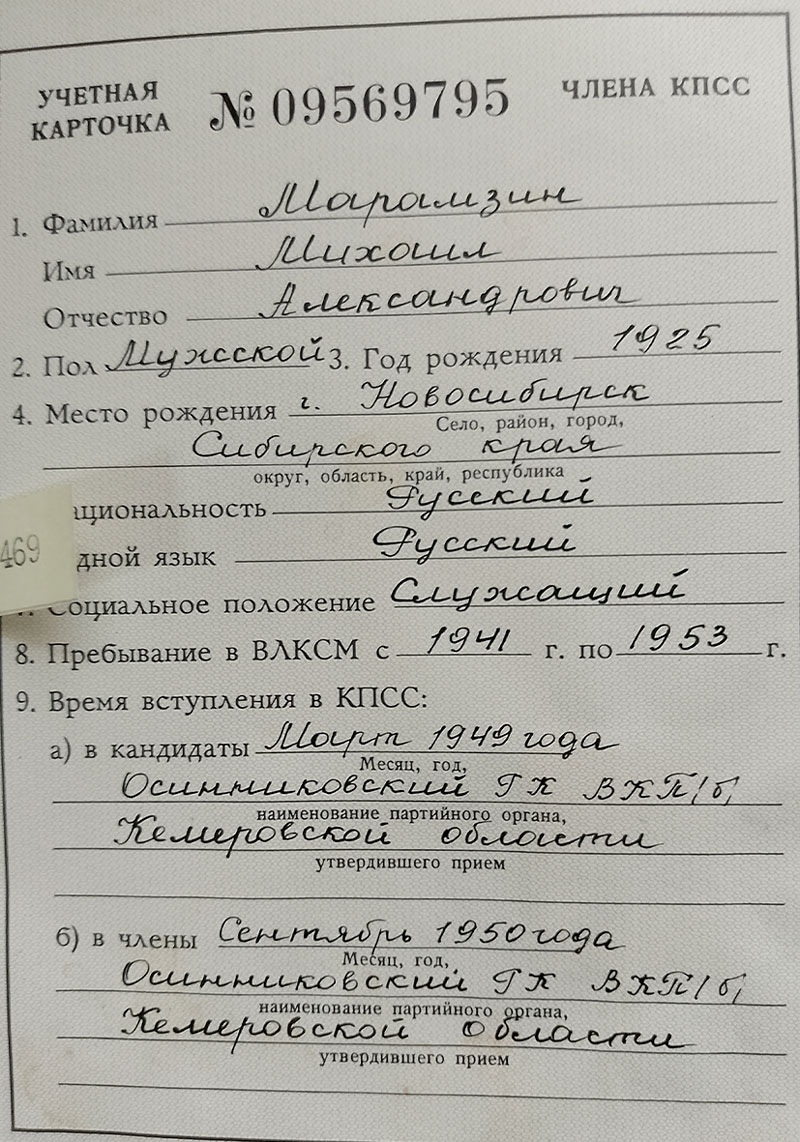 УЧЕТНАЯ КАРТОЧКА № 09569795 ЧЛЕНА КПСС
1. Фамилия Марамзин
Имя Михаил
Отчество Александрович
2. Пол Мужсской 3. Год рождения 1925
4. Место рождения г. Новосибирск
Село, район, город,
Сибирского края
округ, область, край, республика
ациональность Русский
469
дной язык Русский
Социальное положение Служащий
8. Пребывание в ВЛКСМ с 1941 г. по 1953 г.
9. Время вступления в КПСС:
а) в кандидаты Март 1949 года
Месяц, год,
Осинниковский ГК ВКП/б/
наименование партийного органа,
Кемеровской области
утвердившего прием
б) в члены Сентябрь 1950 года
Месяц, год,
Осинниковский ГК ВКП/б/
наименование партийного органа,
Кемеровской области
утвердившего прием